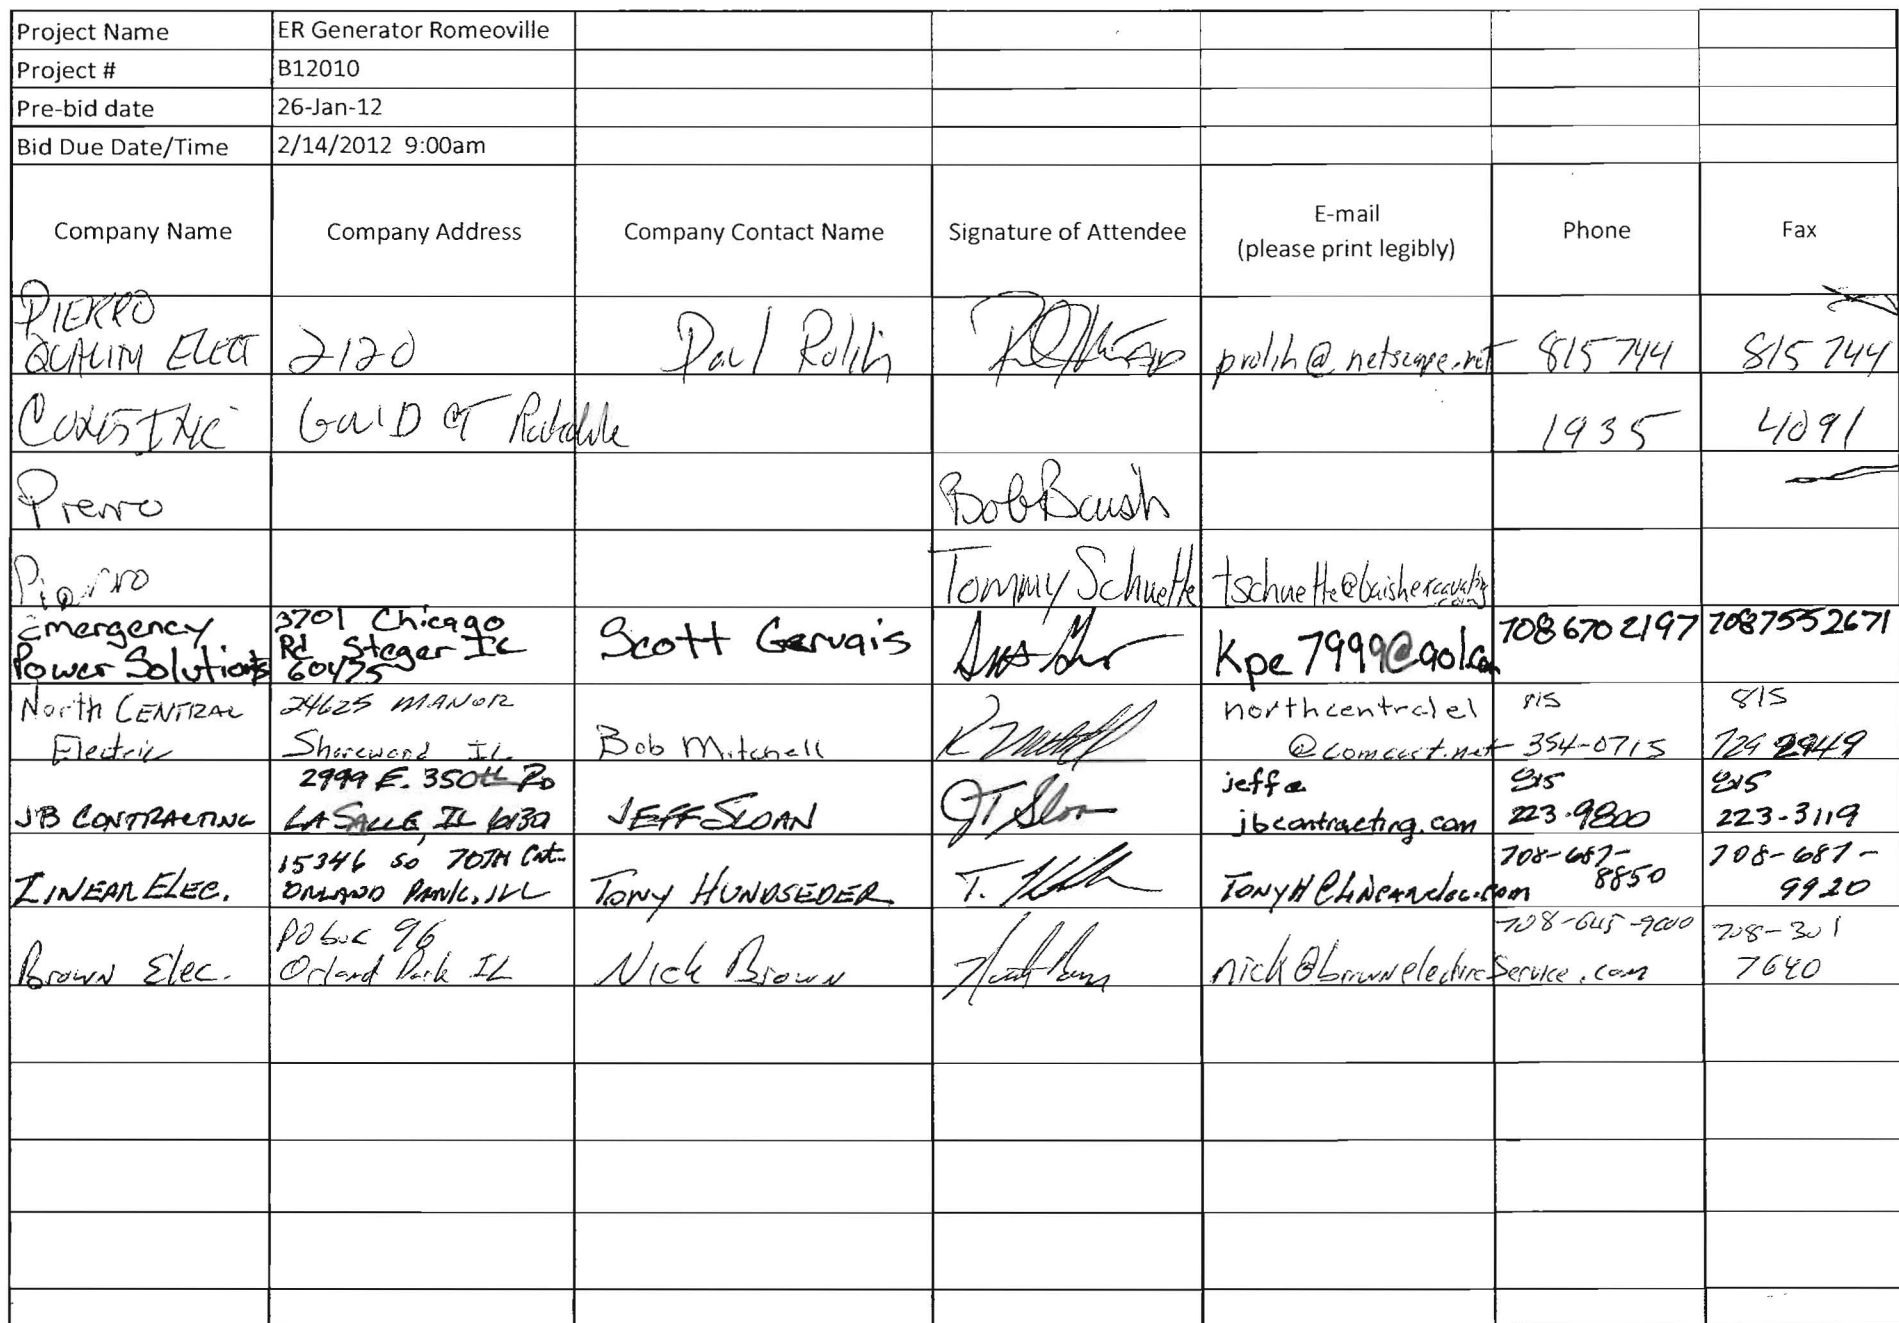 Project Name ER Generator Romeoville
Project # B12010
Pre-bid date 26-Jan-12
Bid Due Date/Time 2/14/2012 9:00am
Company Name Company Address Company Contact Name Signature of Attendee E-mail (please print legibly) Phone Fax
PIERRO
QUALITY ELECT 2120 Paul Rolih prolih@netscape.net 815 744 815 744
CT 1935 4091
Pierro Bob
Pierro Tommy Schuette
Emergency Power Solutions 3701 Chicago Rd Steger IL 60475 Scott Gervais Kpe7999@aol.com 7086702197 7087552671
North CENTRAL Electric 24625 MANOR Shorewood IL Bob Mitchell northcentralel@comcast.net 815 354-0715 815 2949
JB CONTRACTING 2999 E. 350th RD LASALLE, IL JEFF SLOAN JT Sloan jeff@jbcontracting.com 815 223-9800 815 223-3119
LINEAR ELEC. 15346 SO 70TH ORLAND PARK, ILL TONY HUNDSEDER T. TONYH@Linearelec.com 708-687-8850 708-687-9920
Brown Elec. PO box 96 Orland Park IL Nick Brown nick@brownelectricService.com 708-301 7640